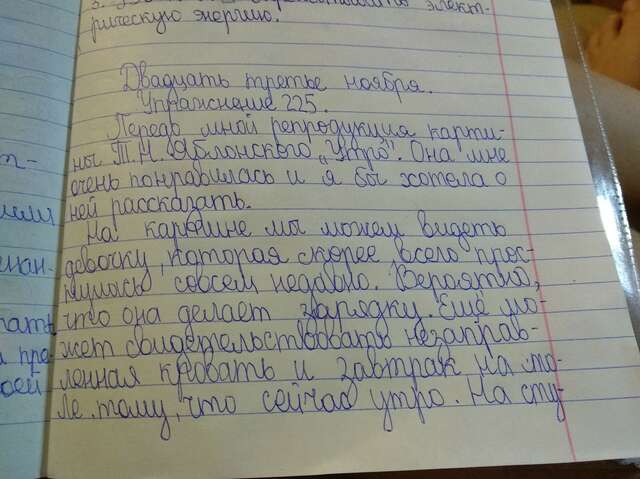 элект-
рическую энергию.
Двадцать третье ноября.
Упражнение 225.
Передо мной репродукция карти-
ны Т.Н. Яблонского „Утро". Она мне
очень понравилась и я бы хотела о
ней рассказать.
На картине мы можем видеть
девочку, которая скорее всего прос-
нулась совсем недавно. Вероятно,
что она делает зарядку. Ещё мо-
жет свидетельствовать незаправ-
ленная кровать и завтрак на сто-
ле тому, что сейчас утро. На сту-